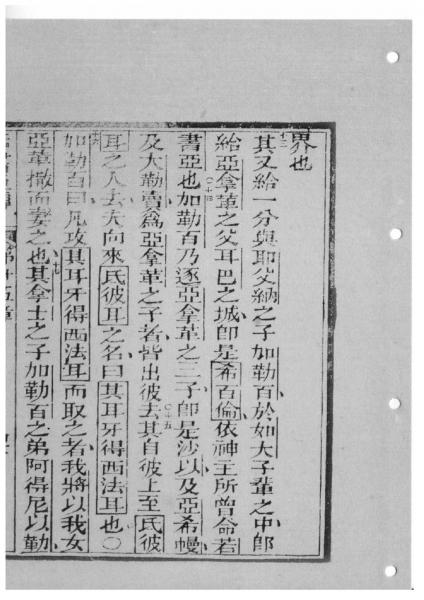 界也
十三其又給一分與耶父納之子加勒百於如大子輩之中卽
給亞拿革之父耳巴之城卽是希百倫依神主所曾命若
書亞也○十四加勒百乃逐亞拿革之三子卽是沙以及亞希幔
及大勒賣爲亞拿革之子者皆出彼去○十五其自彼上至氏彼
耳之人去夫向來氏彼耳之名曰其耳牙得西法耳也○
十六加勒百曰凡攻其耳牙得西法耳而取之者我將以我女
亞革撒而妻之也○十七其拿士之子加勒百之弟阿得尼以勒